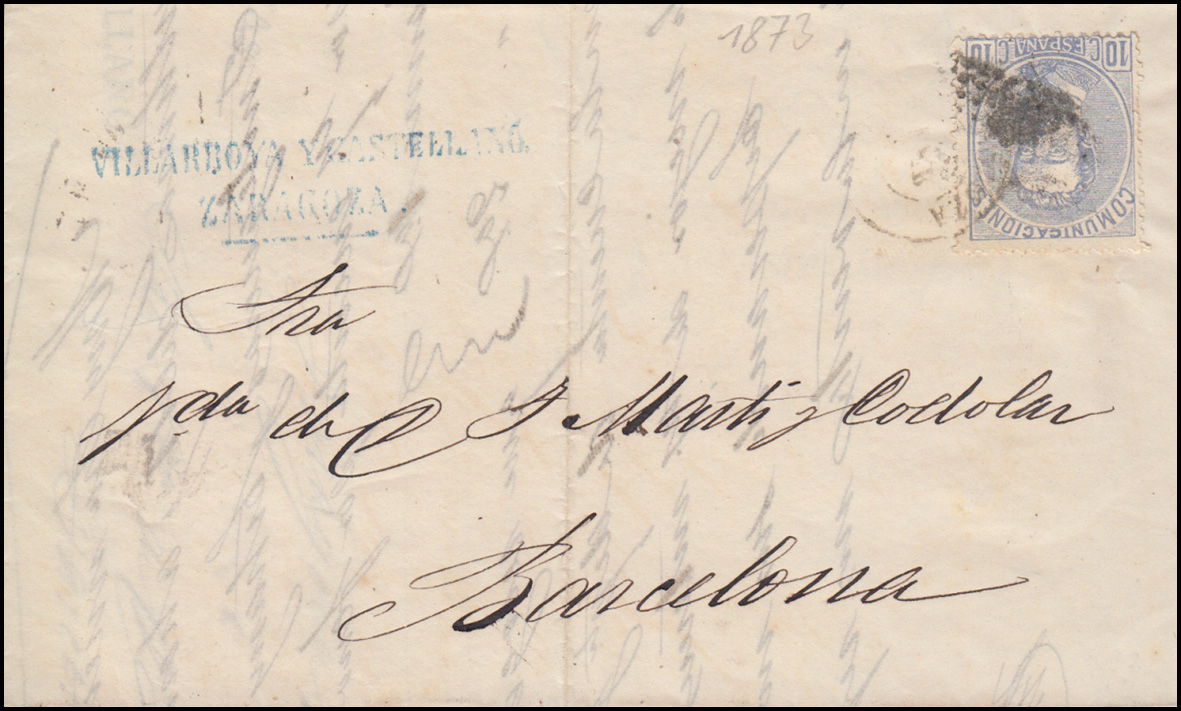 1873
10 C. ESPAÑA C. 10
COMUNICACIONES
VILLARROYA Y CASTELLANO.
ZARAGOZA.
Sra
Vda de D J Marti y Codolar
Barcelona